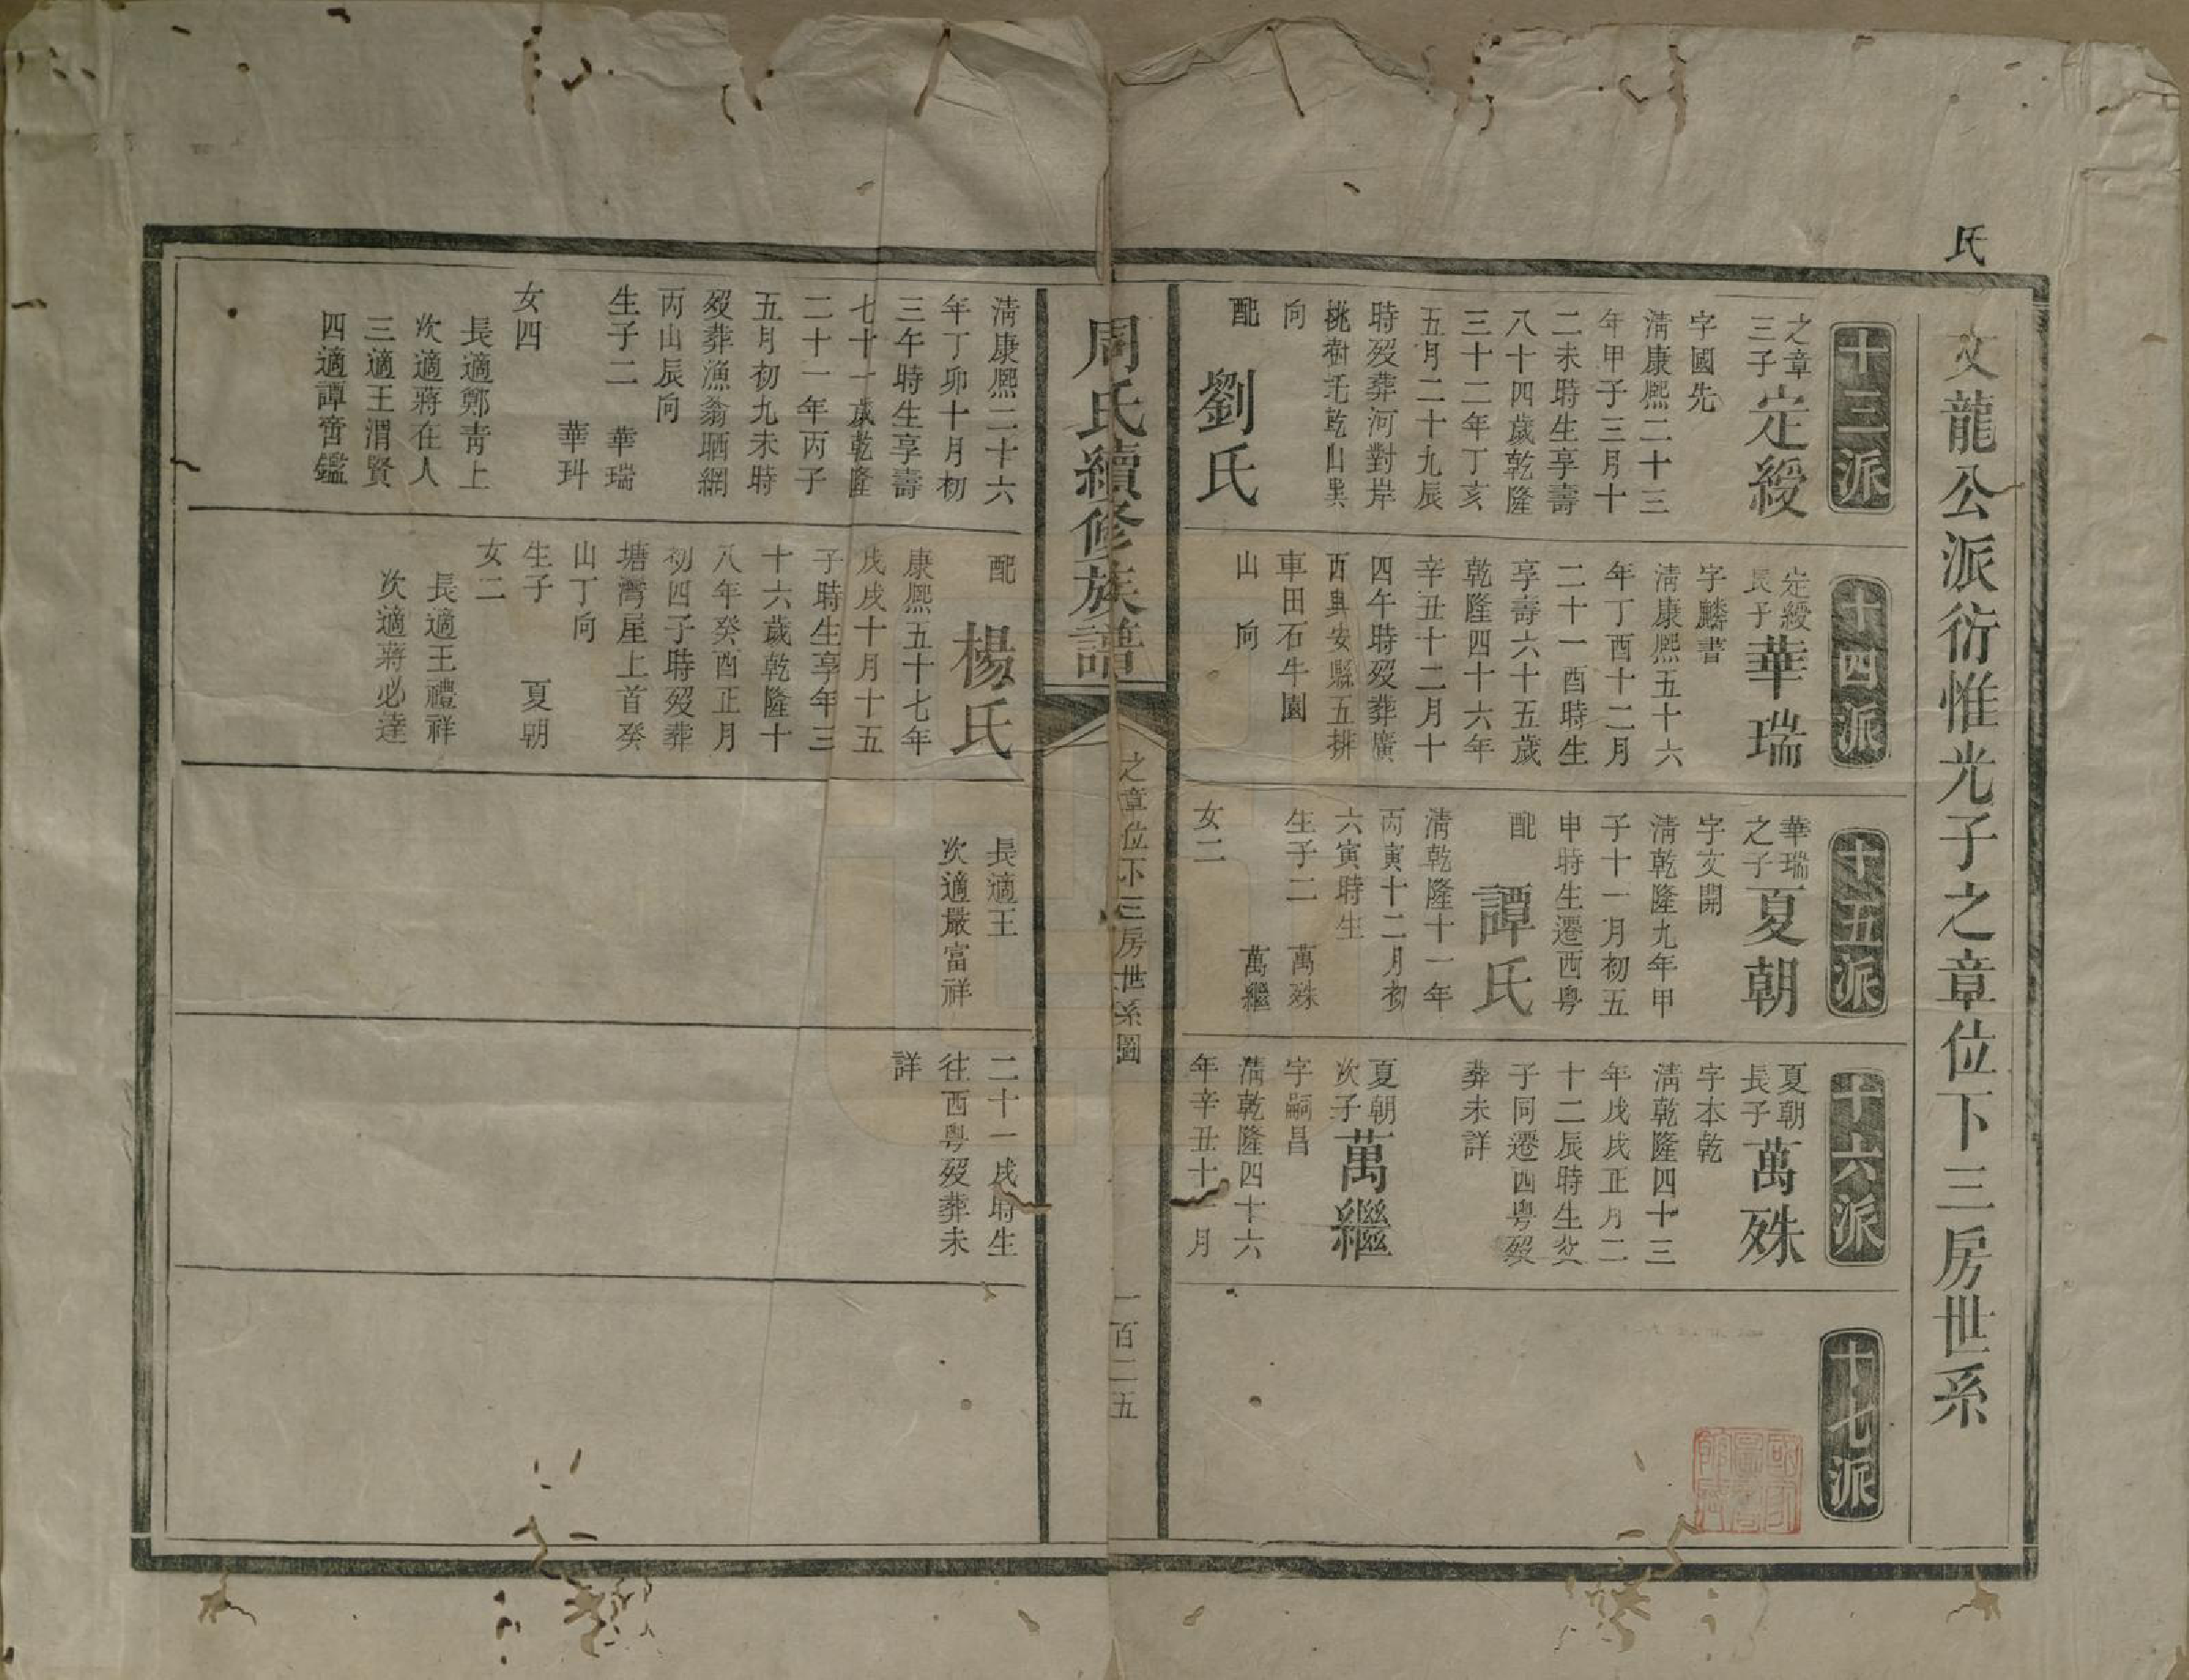 氏
文龍公派衍惟光子之章位下三房世系
十三派
之章
三子
定綬
字國先
清康熙二十三
年甲子三月十
二未時生享壽
八十四歲乾隆
三十二年丁亥
五月二十九辰
時歿葬河對岸
桃樹坵乾山巽
向
配
劉氏
清康熙二十六
年丁卯十月初
三午時生享壽
七十一歲乾隆
二十一年丙子
五月初九未時
歿葬漁翁晒網
丙山辰向
生子二 華瑞
華玝
女四
長適鄭青上
次適蔣在人
三適王渭賢
四適譚啻鑑
十四派
定綬
長子
華瑞
字麟書
清康熙五十六
年丁酉十二月
二十一酉時生
享壽六十五歲
乾隆四十六年
辛丑十二月十
四午時歿葬廣
西興安縣五排
車田石牛園
山 向
配
楊氏
康熙五十七年
戊戌十月十五
子時生享年三
十六歲乾隆十
八年癸酉正月
初四子時歿葬
塘灣屋上首癸
山丁向
生子 夏朝
女二
長適王禮祥
次適蔣必達
十五派
華瑞
之子
夏朝
字文開
清乾隆九年甲
子十一月初五
申時生遷西粵
配
譚氏
清乾隆十一年
丙寅十二月初
六寅時生
生子二 萬殊
萬繼
女二
長適王
次適嚴富祥
十六派
夏朝
長子
萬殊
字本乾
清乾隆四十三
年戊戌正月二
十二辰時生父
子同遷西粵歿
葬未詳
夏朝
次子
萬繼
字嗣昌
清乾隆四十六
年辛丑十一月
二十一戌時生
往西粵歿葬未
詳
十七派
周氏續修族譜
之章位下三房世系圖
一百二五